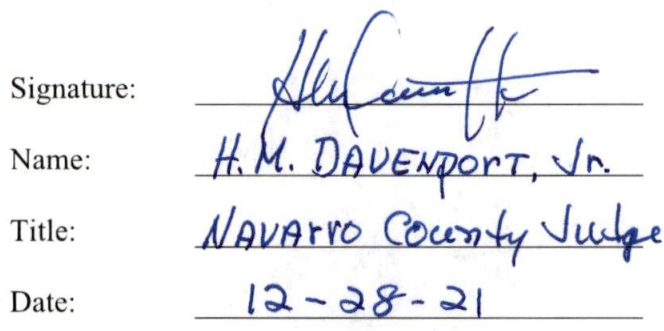 Signature:
Name: H.M. DAVENPORT, Jr.
Title: NAVArro County Judge
Date: 12-28-21